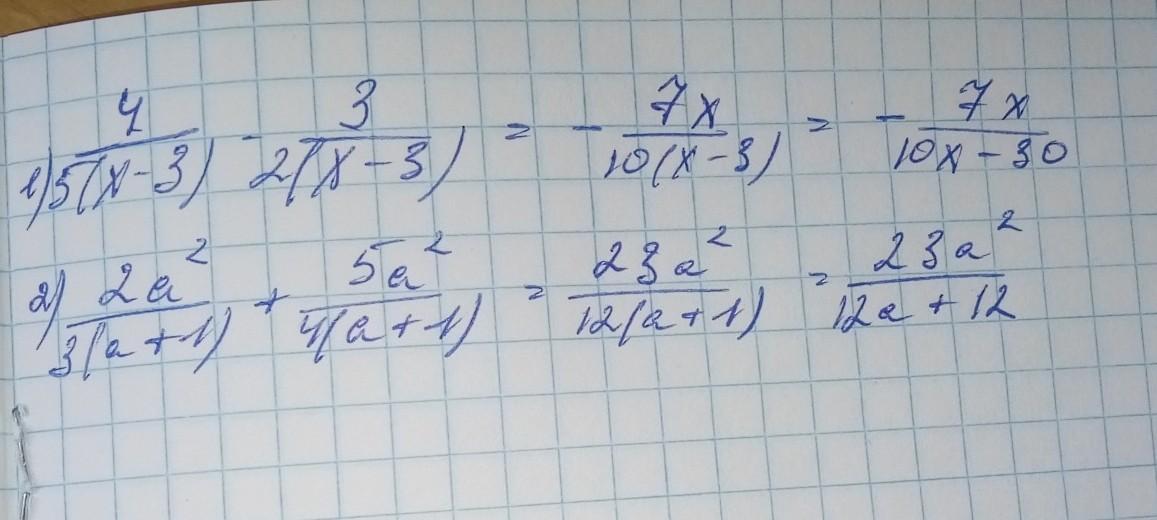 1) 4/5(x-3) - 3/2(x-3) = - 7x/10(x-3) = - 7x/10x-30
2) 2a²/3(a+1) + 5a²/4(a+1) = 23a²/12(a+1) = 23a²/12a+12